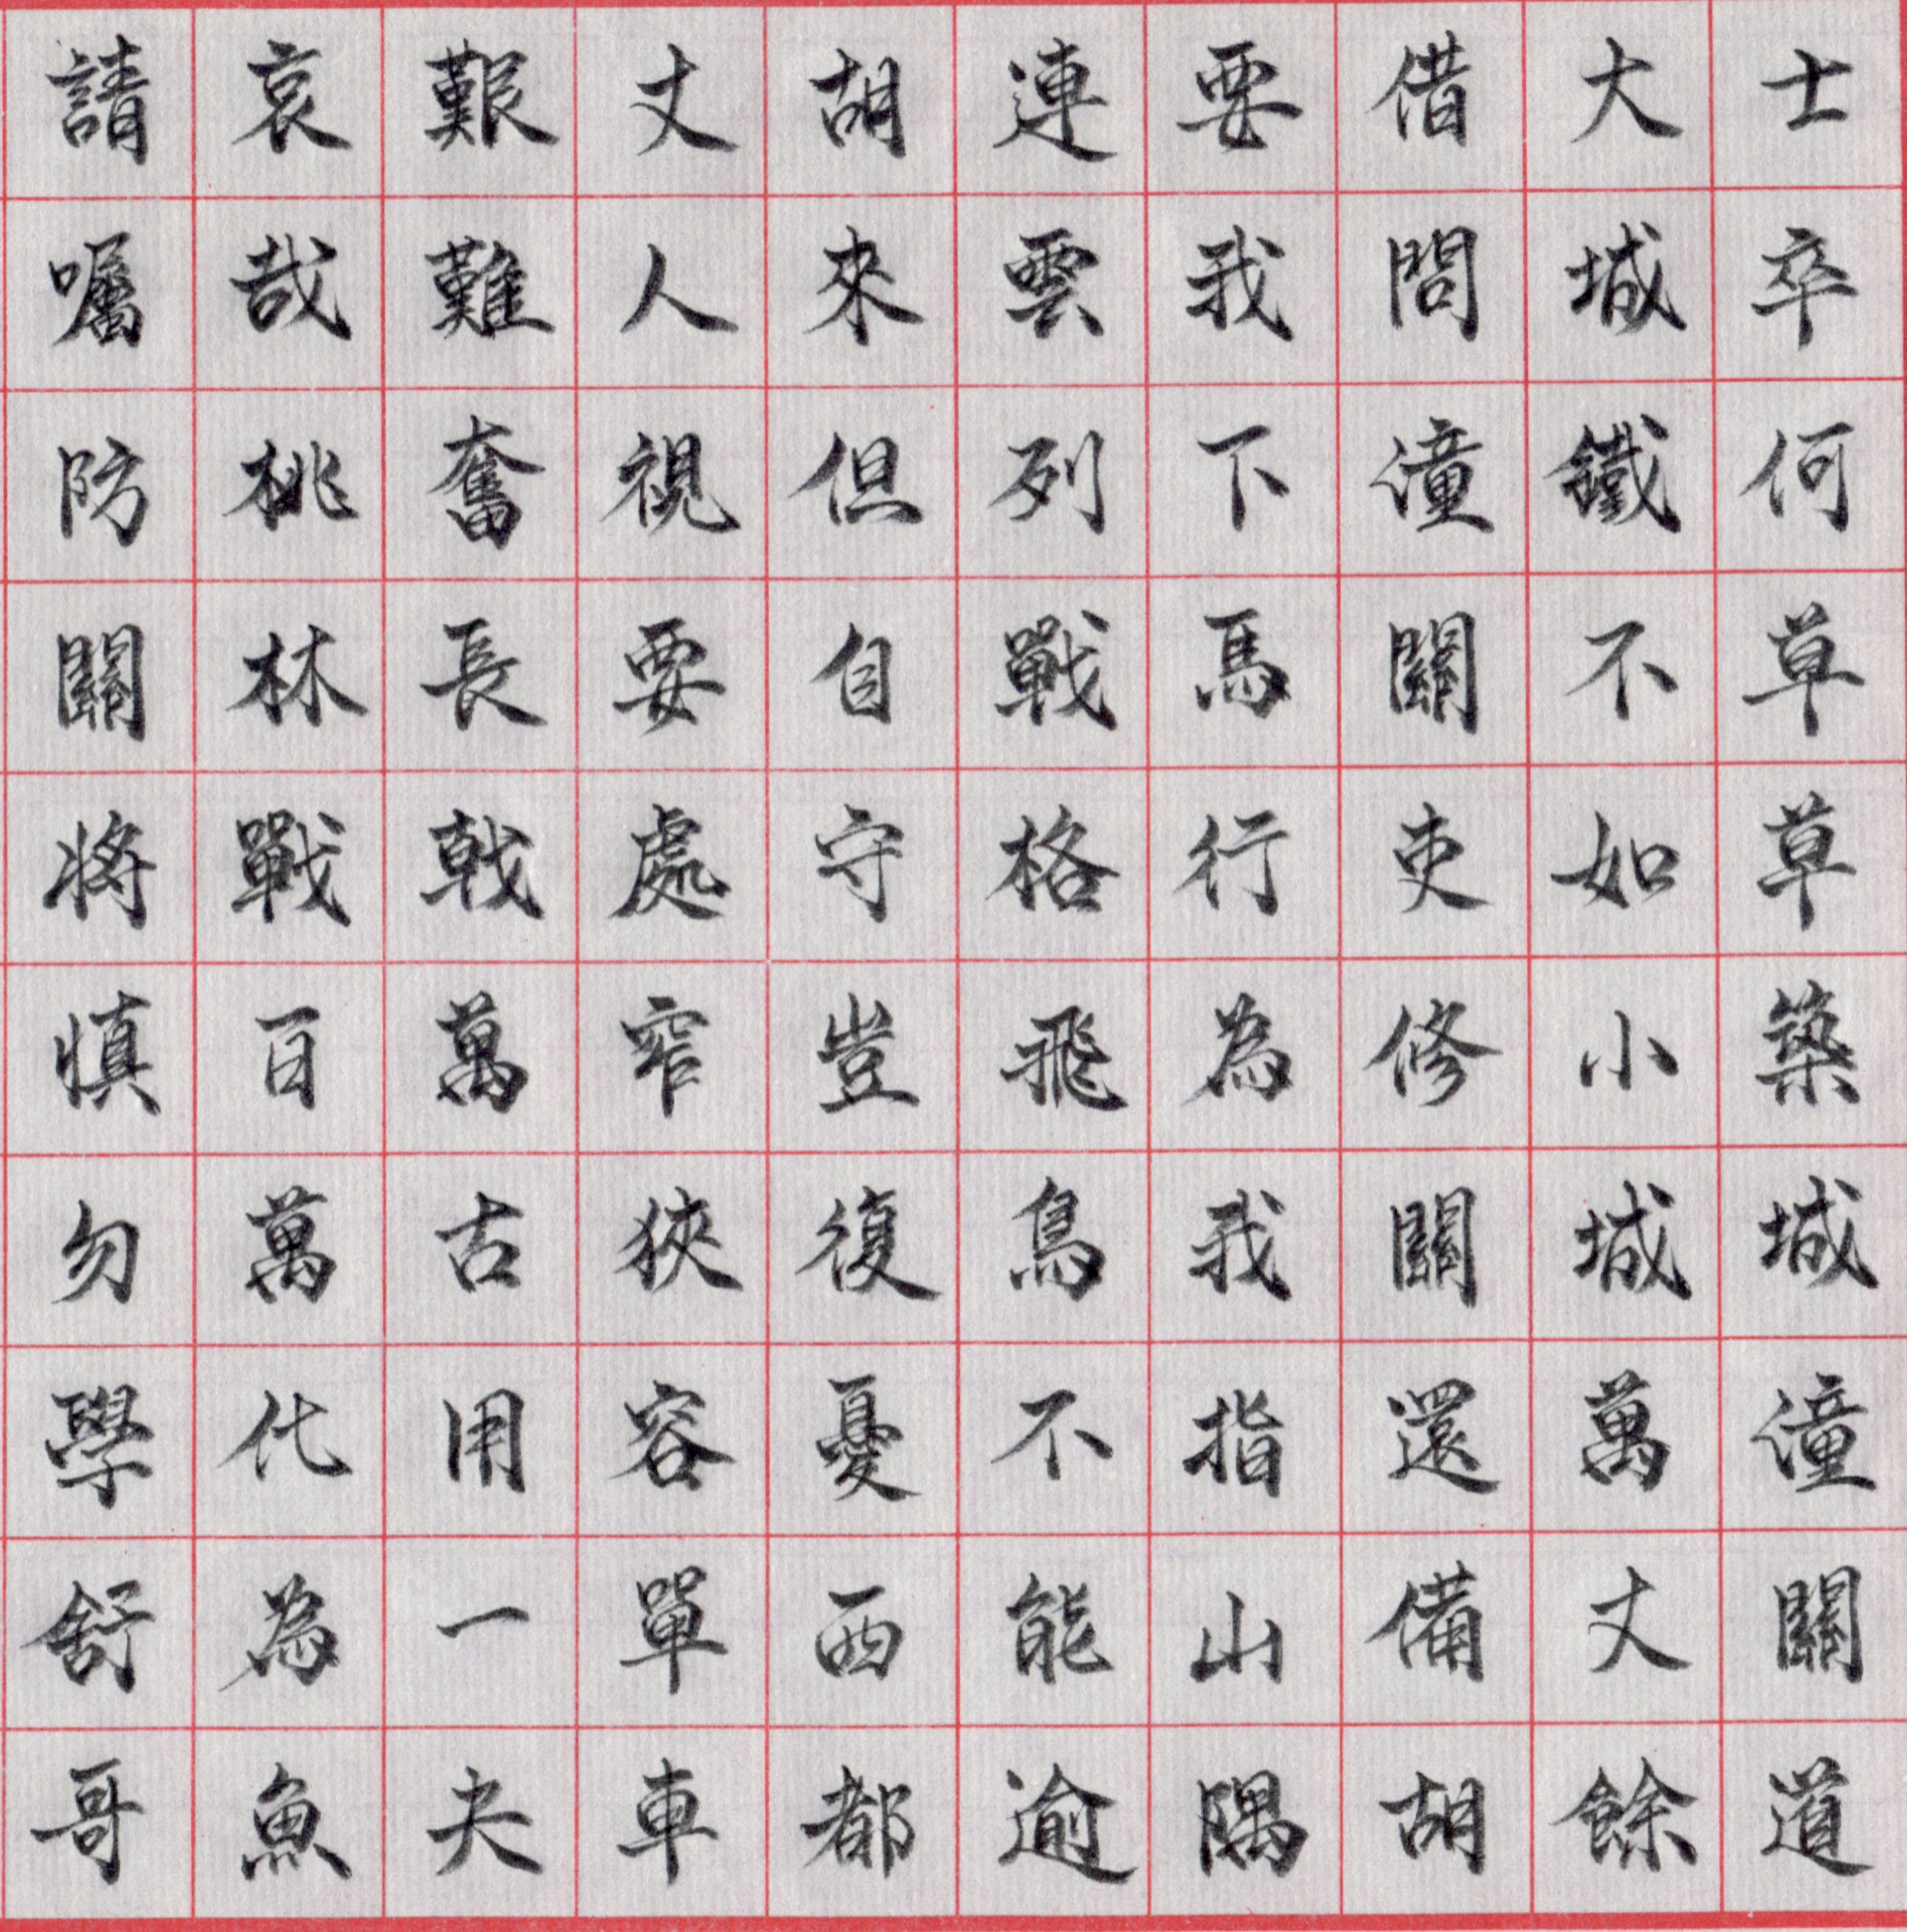 士卒何草草築城潼關道
大城鐵不如小城萬丈餘
借問潼關吏修關還備胡
要我下馬行為我指山隅
連雲列戰格飛鳥不能逾
胡來但自守豈復憂西都
丈人視要處窄狹容單車
艱難奮長戟萬古用一夫
哀哉桃林戰百萬化為魚
請囑防關將慎勿學哥舒